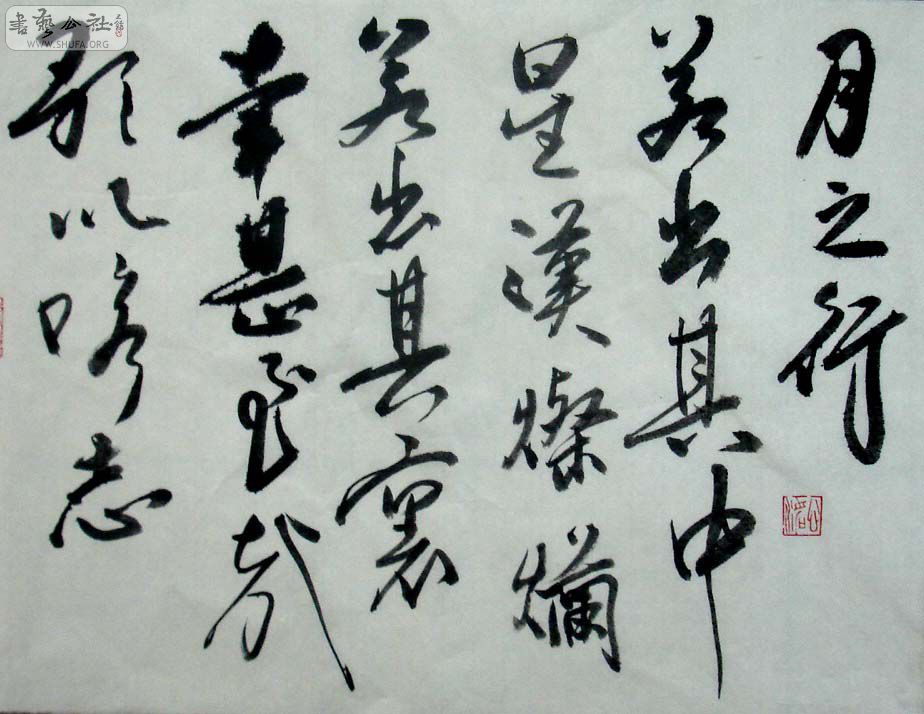 月之行
若出其中
星漢燦爛
若出其裏
幸甚至哉
歌以咏志
書藝公社
WWW.SHUFA.ORG